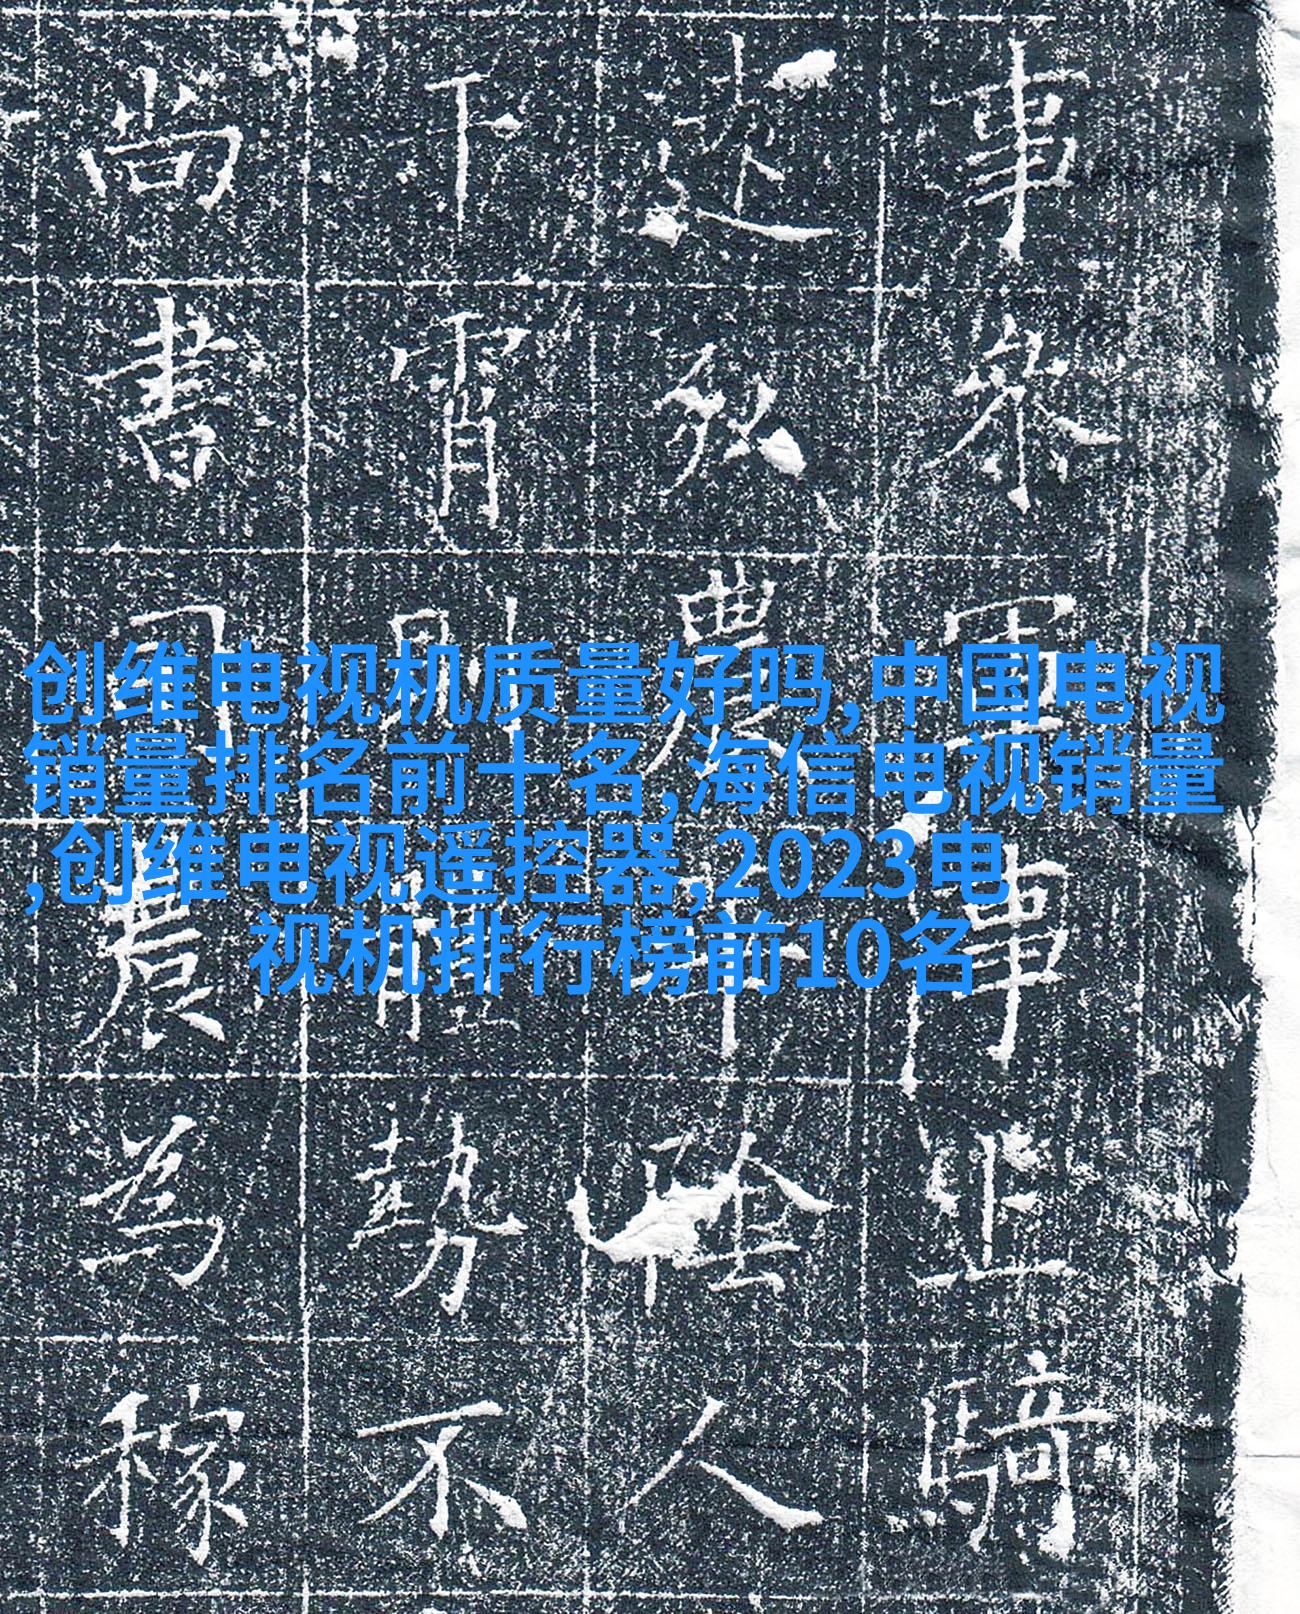 创维电视机质量好吗,中国电视
销量排名前十名,海信电视销量
,创维电视遥控器,2023电
视机排行榜前10名
事軍事騎
弘農華陰人
下霄則體勢不
尚書司農為稼